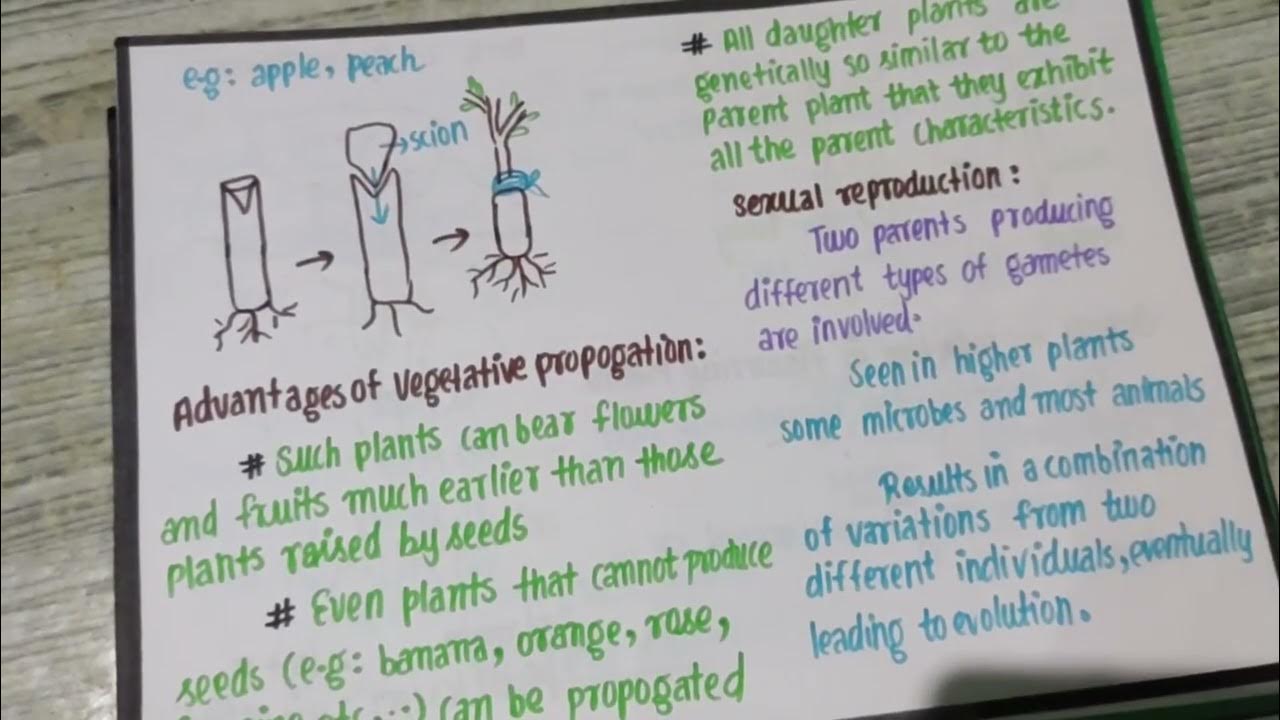 e.g: apple, peach
scion
Advantages of vegetative propogation:
# Such plants can bear flowers
and fruits much earlier than those
plants raised by seeds
# Even plants that cannot produce
seeds (e.g: banana, orange, rose,
etc...) can be propogated
# All daughter plants are
genetically so similar to the
parent plant that they exhibit
all the parent characteristics.
sexual reproduction:
Two parents producing
different types of gametes
are involved.
Seen in higher plants
some microbes and most animals
Results in a combination
of variations from two
different individuals, eventually
leading to evolution.